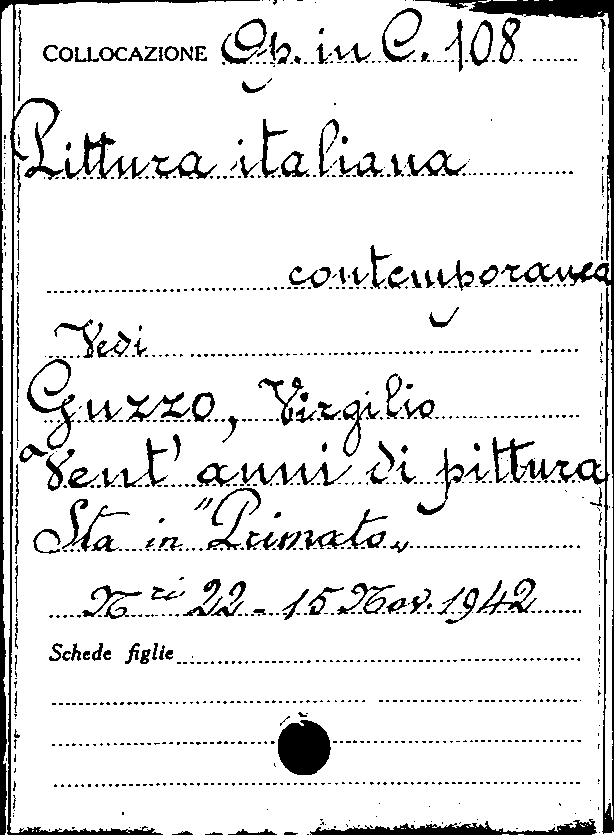 COLLOCAZIONE Op. in C. 108
Pittura italiana
contemporanea
Vedi
Guzzo, Virgilio
Vent' anni di pittura
Sta in "Primato„
Nri 22 - 15 Nov. 1942
Schede figlie